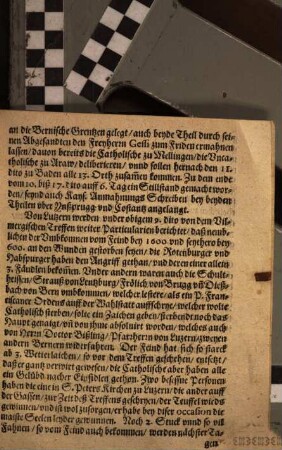 an die Bernische Grentzen gelegt/ auch beyde Theil durch sei-
nen Abgesandten den Freyherrn Geiß zum Friden ermahnen
lassen/ davon bereits die Catholische zu Mellingen/ die Vnca-
tholische zu Araw/ deliberieren/ vnnd sollen hernach den 11.
dito zu Baden alle 13. Orth zusamen kommen. Zu dem ende
vom 10. biß 17. dito auff 6. Tag ein Stillstand gemacht wor-
den/ seynd auch Kayß. Anmahnungs Schreiben bey beyden
Theilen über Ynsprugg vnd Costantz angelangt.
Von Lutzern werden vnderm obigem 9. dito von dem Vil-
mergischen Treffen weiter Particularien berichtet/ daß neuh-
licher der Vmbkonnen vom Feind bey 1600 vnd seythero bey
600. an den Wunden gestorben seyen/ die Rotenburger vnd
Habspurger haben den Angriff gethan/ vnd deren einer allein
3. Fändlen bekomen. Vnder andern waren auch die Schult-
heissen/ Strauß von Lentzburg/ Frölich von Brugg vñ Dieß-
bach von Bern vmbkomen/ welcher letstere/ als ein P. Fran-
ciscaner Ordens auff der Wahlstatt auffschrye/ welcher wolte
Catholisch sterben/ solte ein Zaichen geben/ sterbend noch das
Haupt genaigt/ vnd von jhme absolviert worden/ welches auch
von Herrn Doctor Bißling/ Pfarrherrn von Lutzern/ zweyen
andern Bernern widerfahren. Der Feind hat sich so starck
ab 3. Wetterlaichen/ so vor dem Treffen geschehen/ entsetzt/
daß er gantz verwirt gewesen/ die Catholische aber haben alle
ein Gelübd nacher Einsidlen gethon. Zwo besessne Personen
haben die eine in S. Peters Kirchen zu Lutzern/ die ander auff
der Gassen/ zur Zeit deß Treffens geschryen/ der Teuffel wirds
gewinnen/ vnd ist wol zusorgen/ er habe bey diser occasion die
maiste Seelen leyder gewunnen. Noch 2. Stuck vnnd so vil
Fahnen/ so vom Feind auch bekommen/ werden nächster Ta-
gen